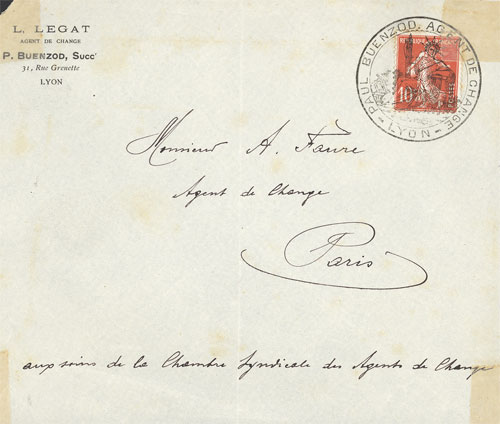 L. LEGAT
AGENT DE CHANGE
P. BUENZOD, Succr
31, Rue Grenette
LYON
PAUL BUENZOD, AGENT DE CHANGE
- LYON -
10
Monsieur A. Faure
Agent de Change
Paris
aux soins de la Chambre Syndicale des Agents de Change